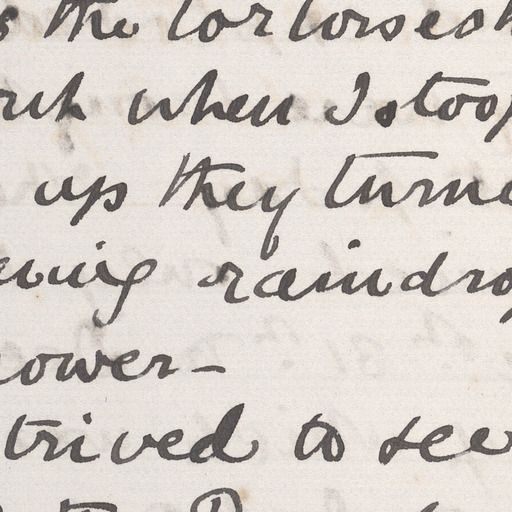 the tortoiseshe
when I stoop
up they turne
ening raindrop
ower –
trived to see